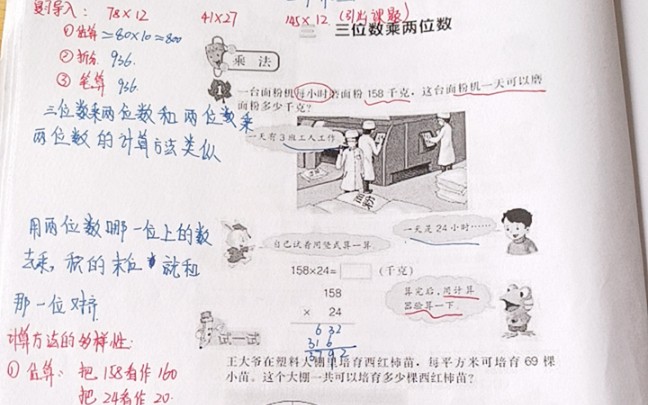 复习导入: 78×12 41×27 145×12 (引出课题)
①估算≈80×10=800
②拆分 936.
③笔算 936.
三位数乘两位数和两位数乘
两位数的计算方法类似
用两位数哪一位上的数
去乘,积的末位就和
那一位对齐
计算方法的多样性:
①估算: 把158看作160
把24看作20.
三位数乘两位数
乘 法
1
一台面粉机每小时磨面粉158千克,这台面粉机一天可以磨
面粉多少千克?
一天有3班工人工作
一天是24小时……
自己试着用竖式算一算
158×24= (千克)
158
× 24
632
316
3792
算完后,用计算
器验算一下。
试一试
王大爷在塑料大棚里培育西红柿苗,每平方米可培育69棵
小苗。这个大棚一共可以培育多少棵西红柿苗?